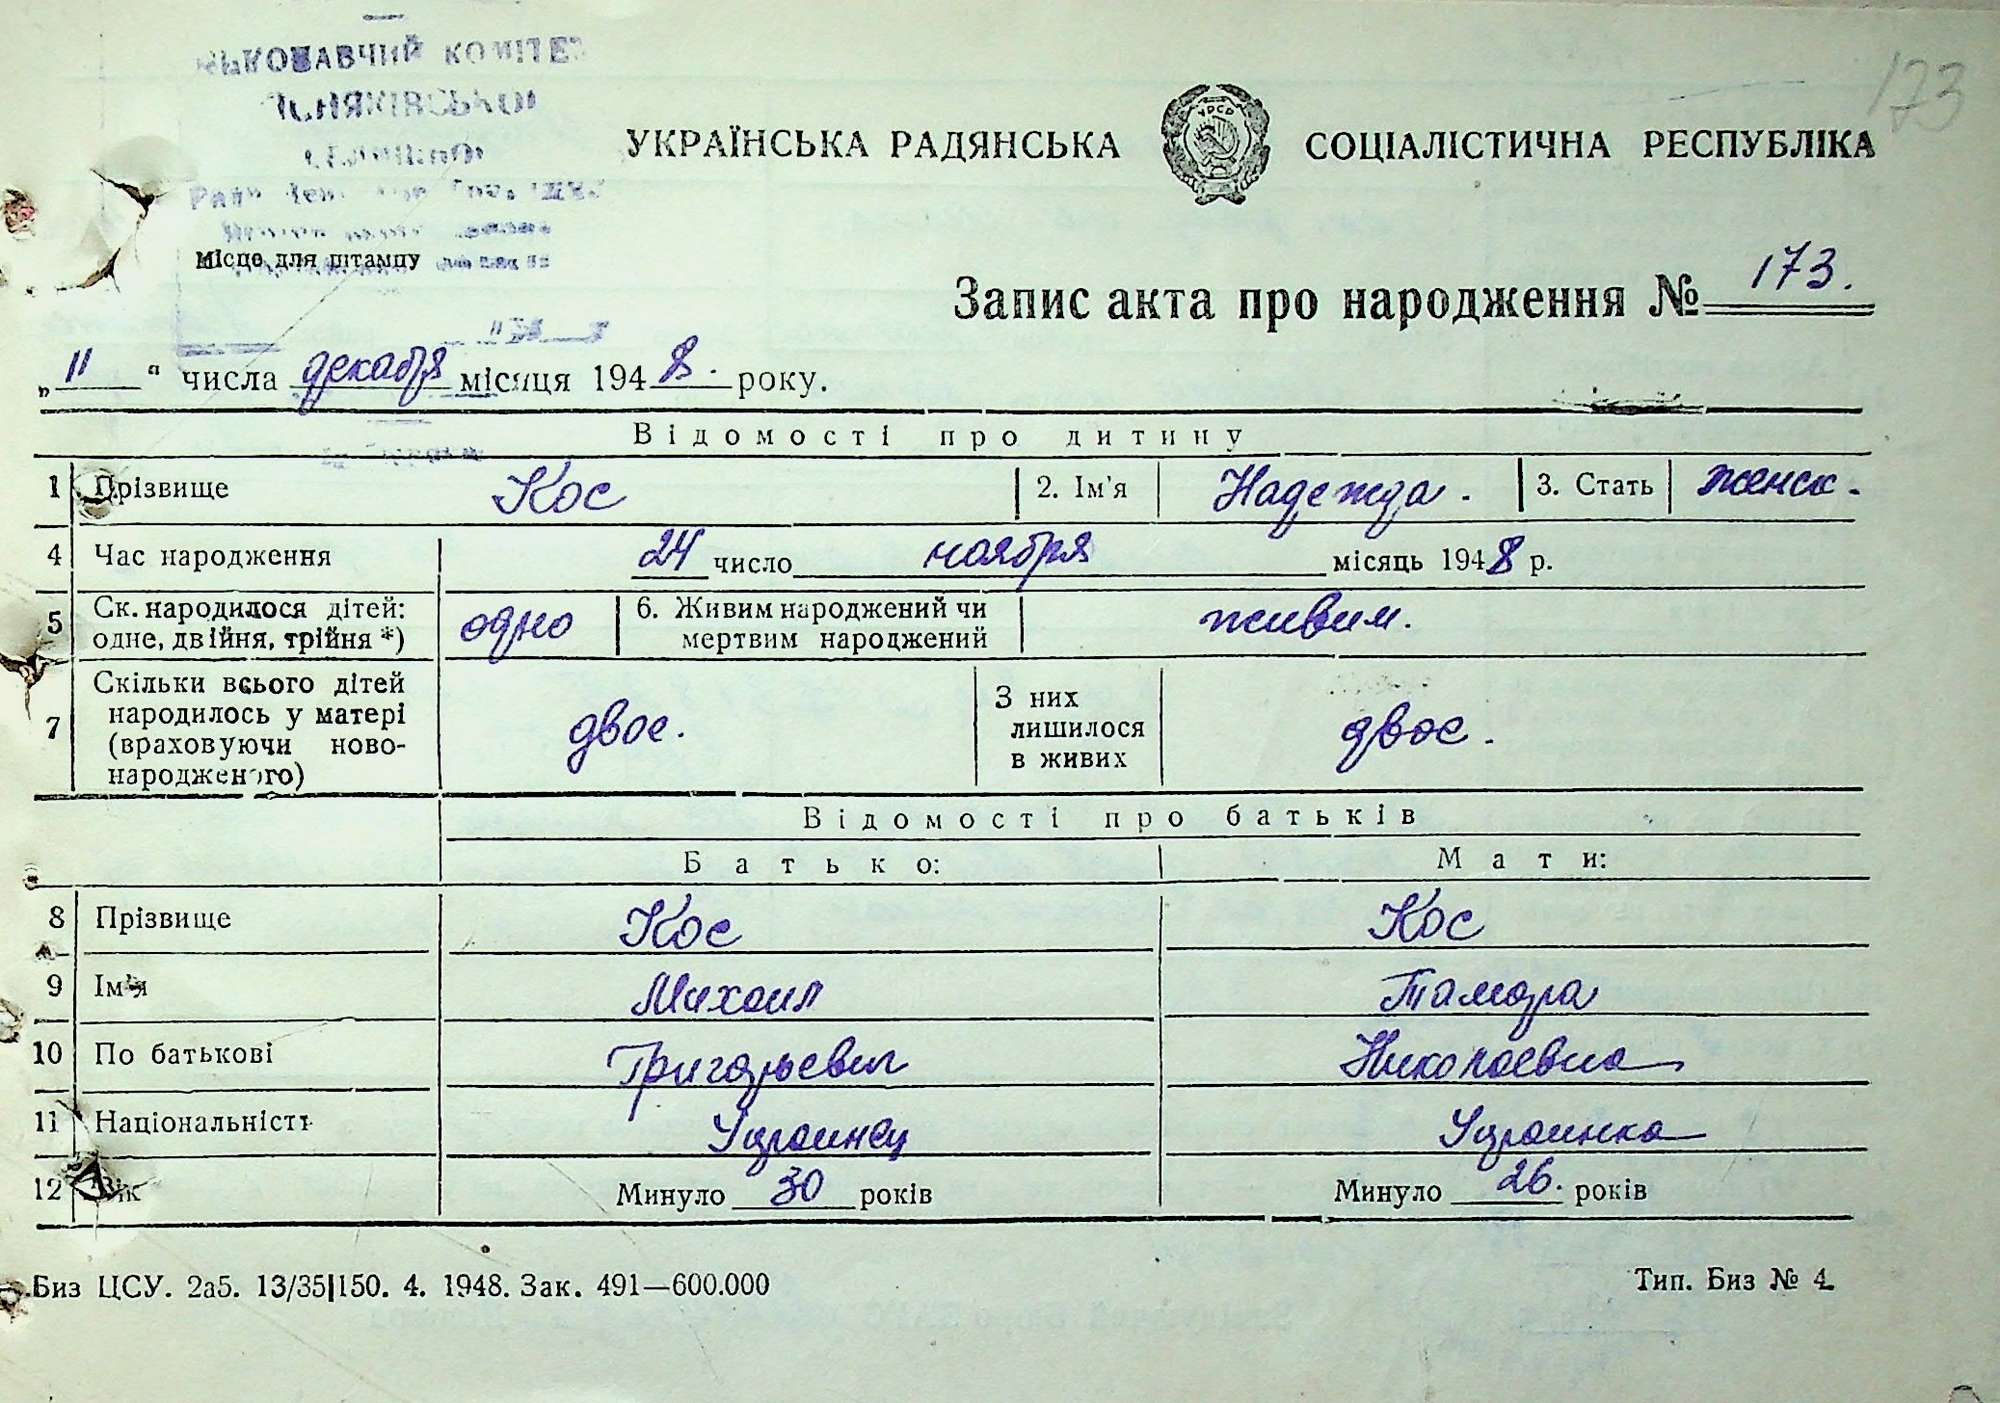 173
КОМІТЕТ
УКРАЇНСЬКА РАДЯНСЬКА СОЦІАЛІСТИЧНА РЕСПУБЛІКА
УРСР
Місце для штампу
Запис акта про народження № 173.
„ 11 “ числа декабря місяця 1948. року.
Відомості про дитину
1 Прізвище Кос 2. Ім'я Надежда. 3. Стать женск.
4 Час народження 24 число ноября місяць 1948 р.
5 Ск. народилося дітей: одне, двійня, трійня *) одно 6. Живим народжений чи мертвим народжений живим.
7 Скільки всього дітей народилось у матері (враховуючи ново-народженого) двое. З них лишилося в живих двое.
Відомості про батьків
Батько: Мати:
8 Прізвище Кос Кос
9 Ім'я Михаил Тамара
10 По батькові Григорьевич Николаевна
11 Національність Украинец Украинка
12 Вік Минуло 30 років Минуло 26. років
Биз ЦСУ. 2а5. 13/35|150. 4. 1948. Зак. 491—600.000 Тип. Биз № 4